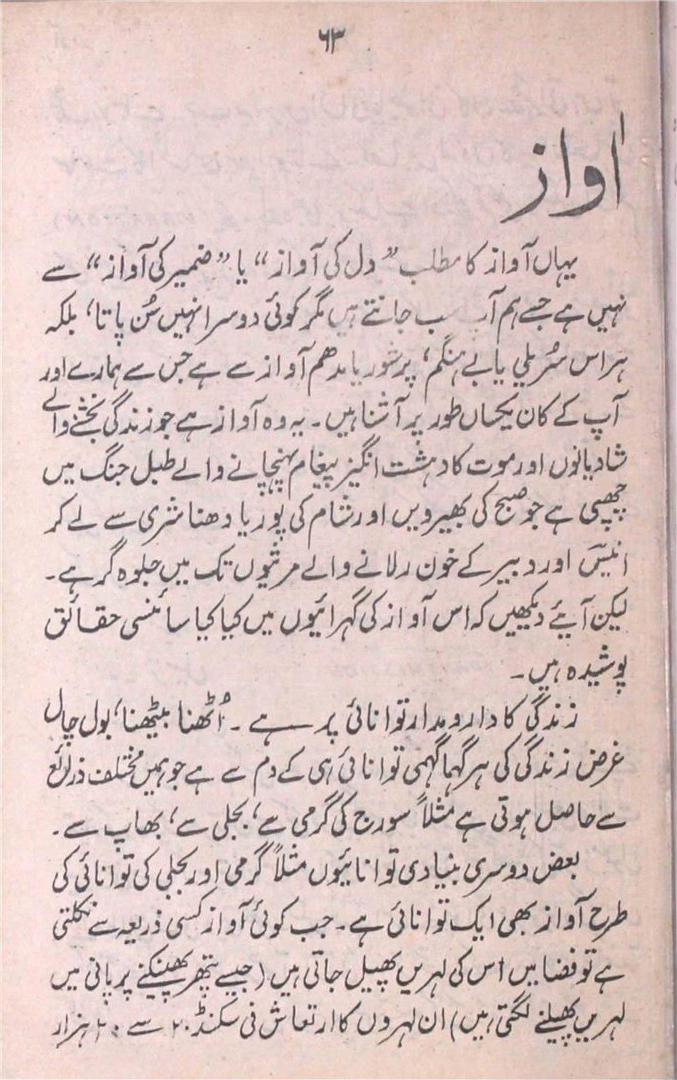 ۶۳
آواز
یہاں آواز کا مطلب ”دل کی آواز“ یا ”ضمیر کی آواز“ سے
نہیں ہے جسے ہم آپ سب جانتے ہیں مگر کوئی دوسرا نہیں سُن پاتا، بلکہ
ہر اس سُریلی یا بے ہنگم، پر شور یا مدھم آواز سے ہے جس سے ہمارے اور
آپ کے کان یکساں طور پر آشنا ہیں۔ یہ وہ آواز ہے جو زندگی بخشنے والے
شادیانوں اور موت کا دہشت انگیز پیغام پہنچانے والے طبل جنگ میں
چھپی ہے جو صبح کی بھیرویں اور شام کی پوریا دھناشری سے لے کر
انیسؔ اور دبیر کے خون رلانے والے مرثیوں تک میں جلوہ گر ہے۔
لیکن آیئے دیکھیں کہ اس آواز کی گہرائیوں میں کیا کیا سائنسی حقائق
پوشیدہ ہیں۔
زندگی کا دارومدار توانائی پر ہے۔ اُٹھنا بیٹھنا، بول چال
غرض زندگی کی ہر گہماگہمی توانائی ہی کے دم سے ہے جو ہمیں مختلف ذرائع
سے حاصل ہوتی ہے مثلاً سورج کی گرمی سے، بجلی سے، بھاپ سے۔
بعض دوسری بنیادی توانائیوں مثلاً گرمی اور بجلی کی توانائی کی
طرح آواز بھی ایک توانائی ہے۔ جب کوئی آواز کسی ذریعہ سے نکلتی
ہے تو فضا میں اس کی لہریں پھیل جاتی ہیں (جیسے پتھر پھینکنے پر پانی میں
لہریں پھیلنے لگتی ہیں) ان لہروں کا ارتعاش فی سکنڈ ۲۰ سے ۲۰ ہزار